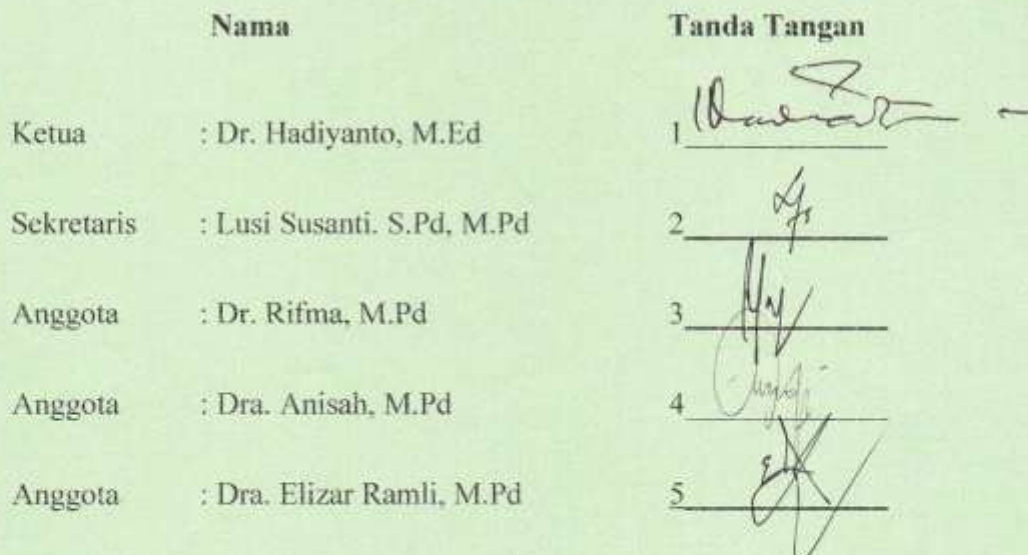 Nama Tanda Tangan
Ketua : Dr. Hadiyanto, M.Ed 1
Sekretaris : Lusi Susanti. S.Pd, M.Pd 2
Anggota : Dr. Rifma, M.Pd 3
Anggota : Dra. Anisah, M.Pd 4
Anggota : Dra. Elizar Ramli, M.Pd 5